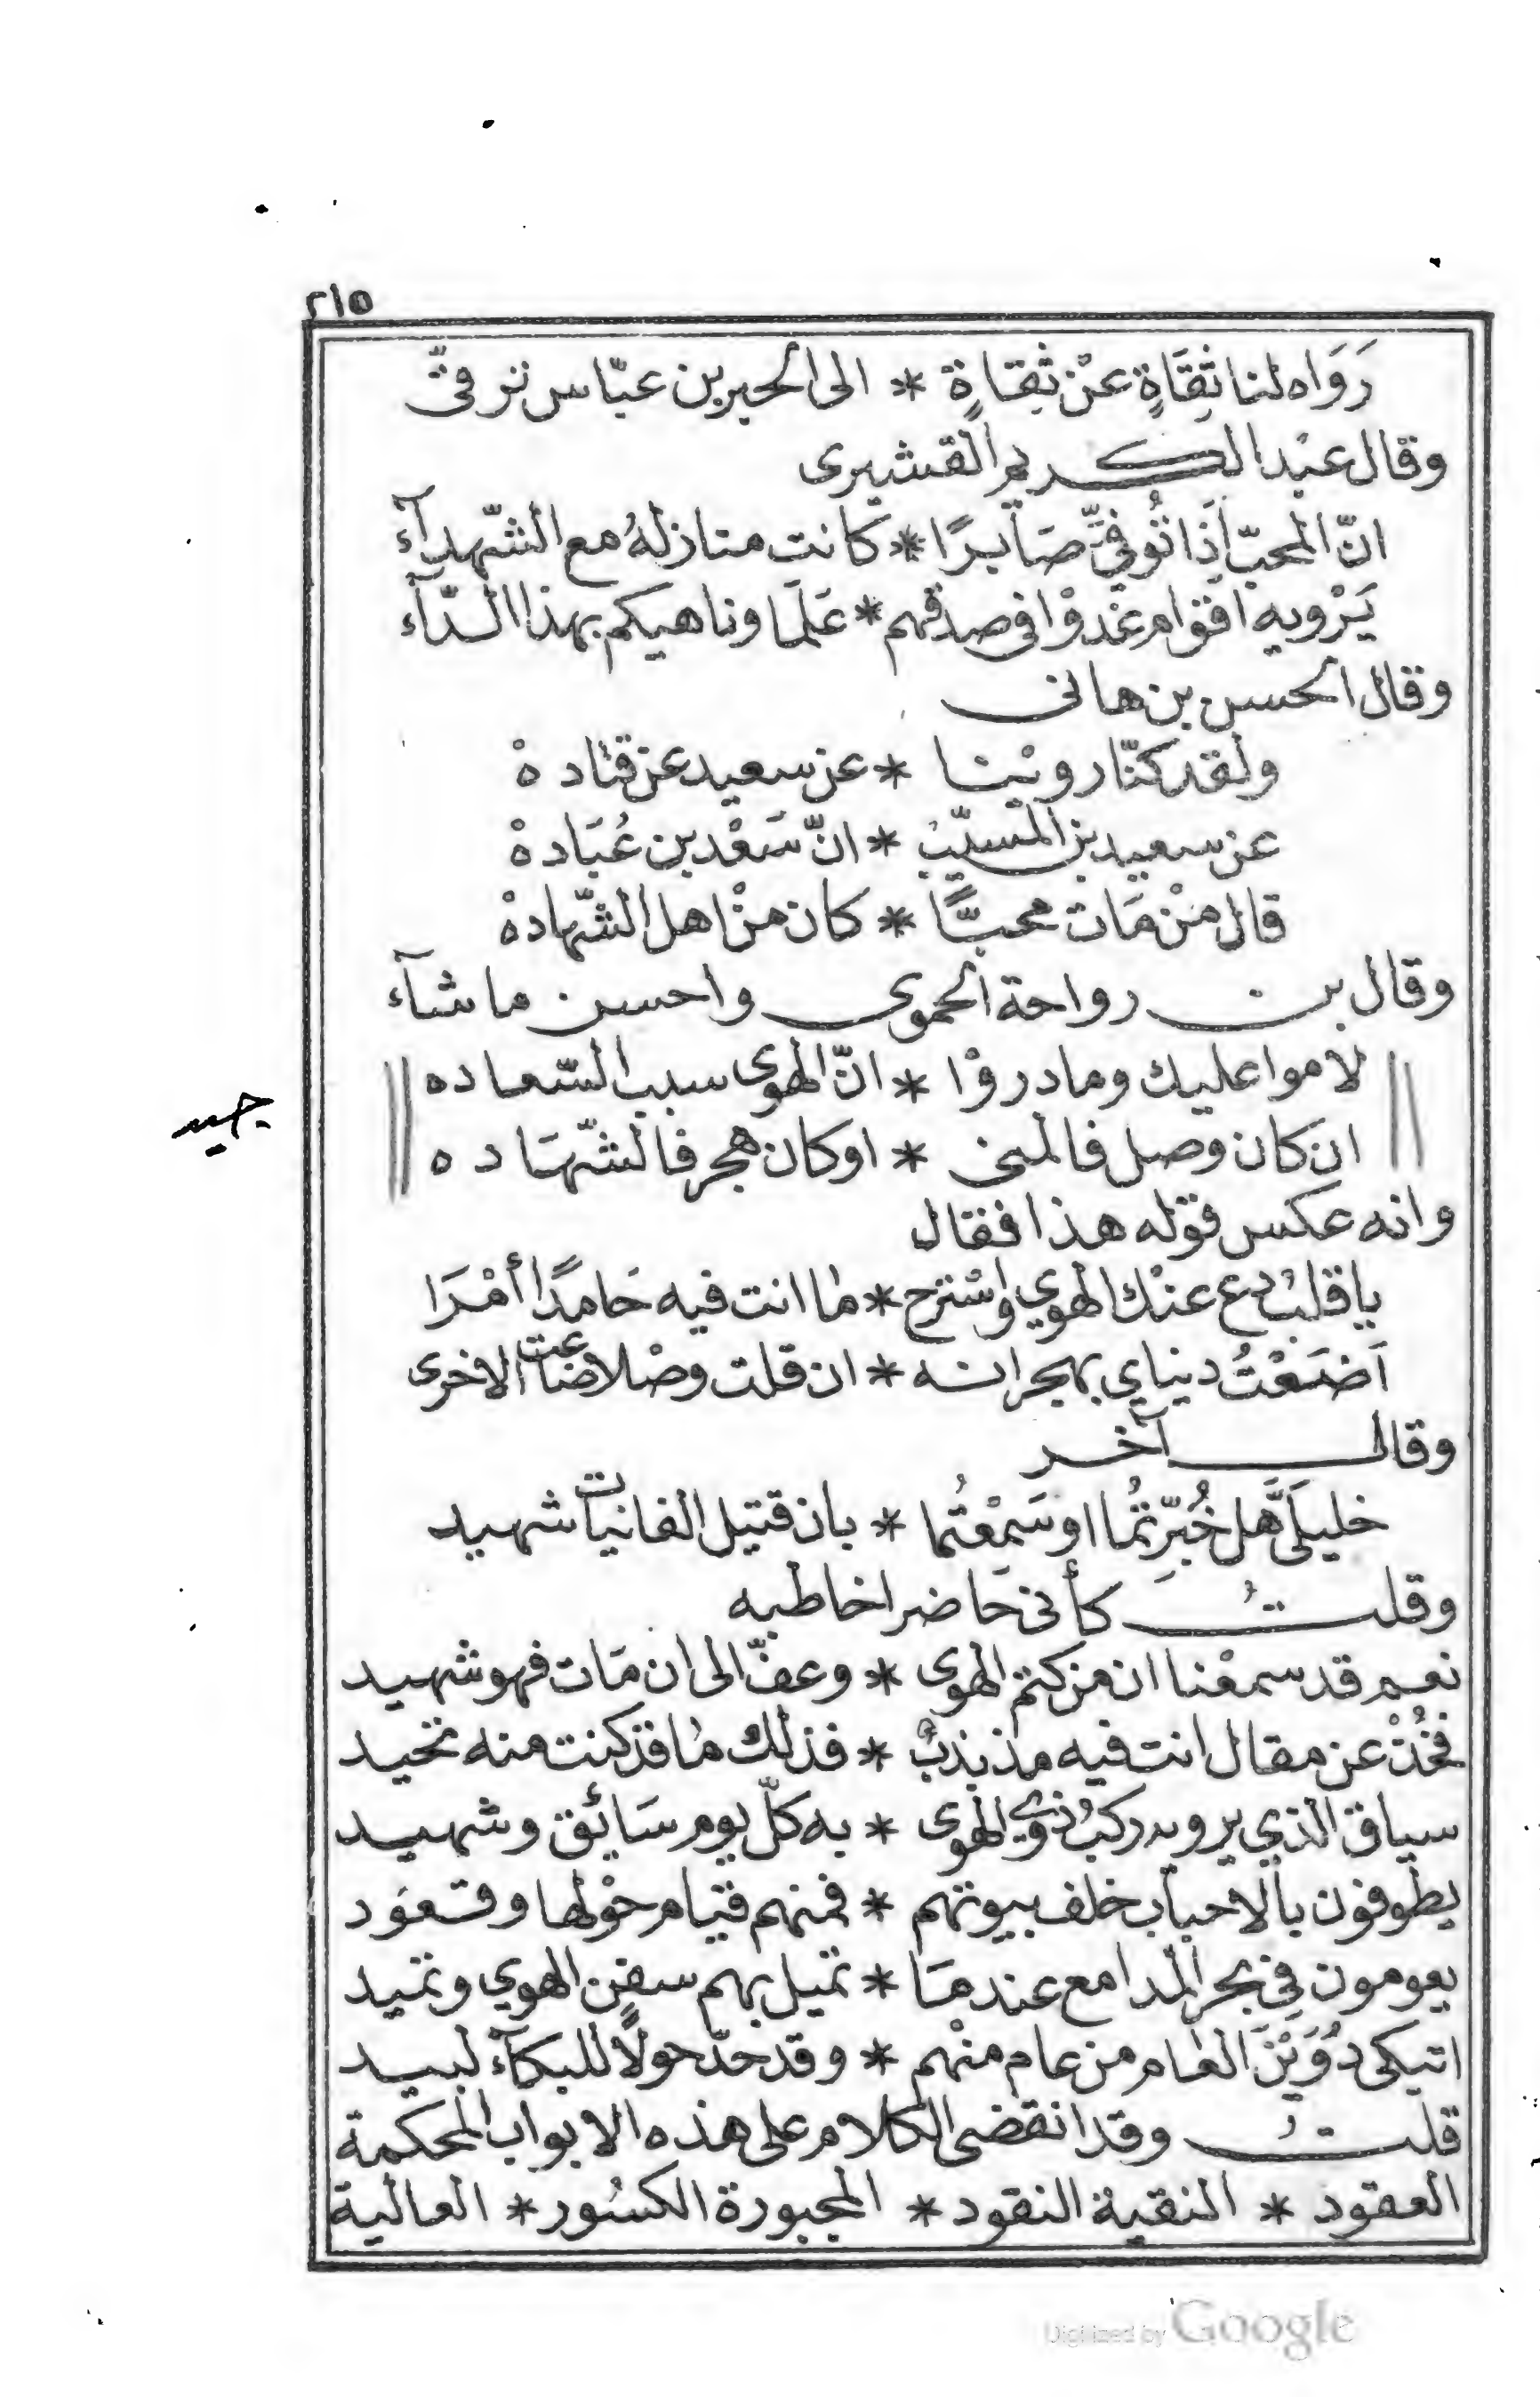 ٢١٥
رَوَاه لنا ثِقَاةٍ عنْ ثِقاةٍ * الى الحبر بن عبّاس ترقىّ
وقال عبْد الكريم القشيرى
انّ المحبّ اذَا تُوفِّىَ صَابرًا * كانت منازلهُ مع الشّهدآء
يَرْويه اقوام غدوْا فى صدقهم * عَلَمًا وناهيكم بهذا الدّآء
وقال الحسن بن هانى
ولقد كنّا رويْنا * عن سعيد عن قتادهْ
عن سعيد بن المسيّبْ * انّ سَعْد بن عُبَادهْ
قال منْ مَات محبًّا * كان منْ اهل الشّهادهْ
وقال بن رواحة الحموى واحسن ما شآء
لاموا عليك وما دروْا * انّ الهوى سبب السّعاده
ان كان وصل فالمنى * او كان هجر فالشّهَاده
وانه عكس قوله هذا فقال
يا قلبُ دع عنْك الهوي واسْترح * ما انت فيه حَامدًا أمْرَا
اَضَعْتُ دنياي بهجرانه * ان قلت وصْلا ضاعت الاخرى
وقال آخر
خليلَىَّ هل خُبِّرتُما او سَمعْتُما * بان قتيل الغانيات شهيد
وقلتُ كأنى حَاضر اخاطبه
نعم قد سمعْنا ان من كتم الهوى * وعفّ الى ان مَات فهو شهيد
فخُذْ عن مقال انت فيه مذبذبٌ * فذلك مَا قد كنت منه تحيد
سياق الذي يرويه ركبُ ذوي الهوى * به كلّ يوم سَائق وشهيد
يطوفون بالاحباب خلف بيوتهم * فمنهم قيام حوْلها وقعوَد
يعومون فِى بحر المدامع عندهَا * تميل بهم سفن الهوي وتميد
اتبكى دُوَيْنَ العام من عام منْهم * وقد حدّ حولاً للبكآء لبيد
قلتُ وقد انقضى الكلام على هذه الابواب المحكمة
العقود * النقية النقود * المجبورة الكسُور * العالية
Digitized by Google